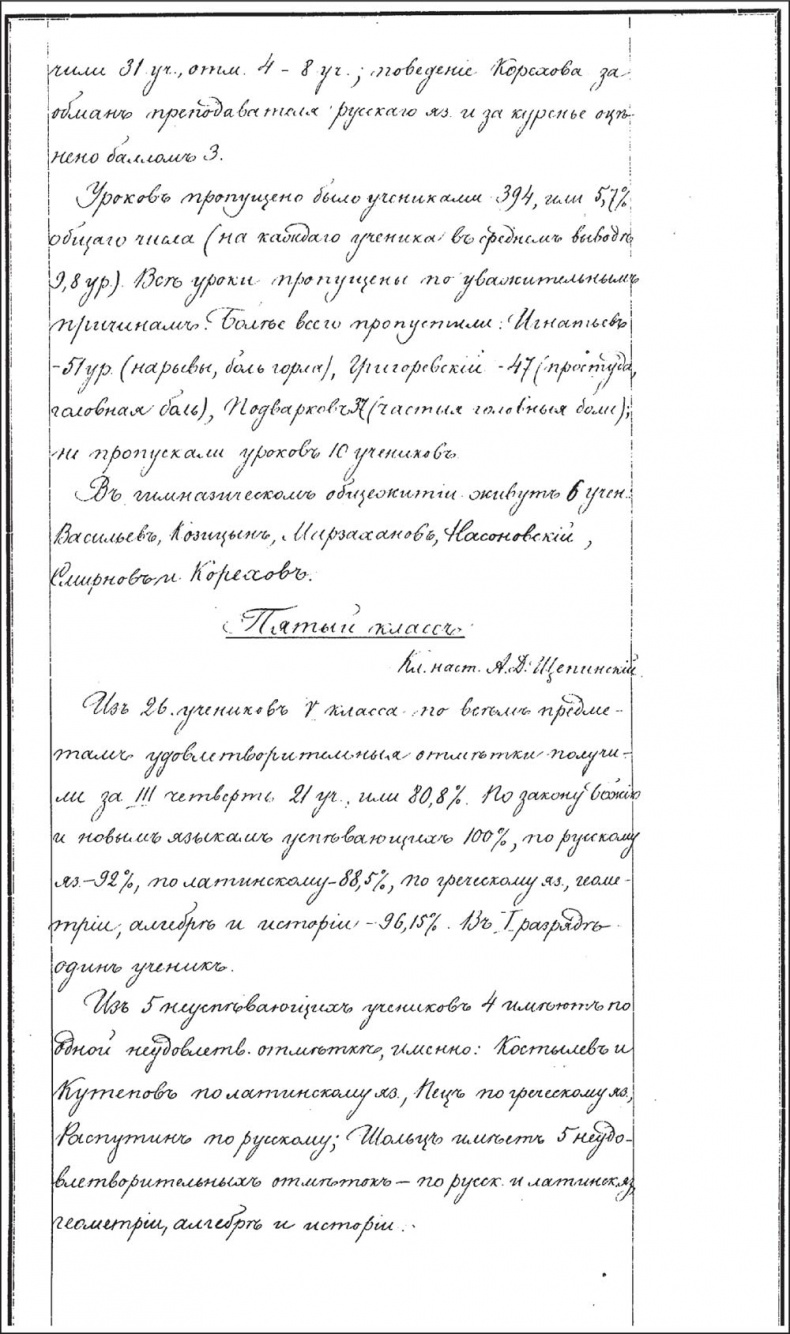 чили 31 уч., отм. 4 - 8 уч.; поведеніе Корехова за
обманъ преподавателя русскаго яз. и за куренье оцѣ-
нено балломъ 3.
Уроковъ пропущено было учениками 394, или 5,7%
общаго числа (на каждаго ученика въ среднемъ выводѣ
9,8 ур.). Всѣ уроки пропущены по уважительнымъ
причинамъ. Болѣе всего пропустили: Игнатьевъ
- 51 ур. (нарывы, боль горла), Григоревскій - 47 (простуда,
головная боль), Подварковъ 37 (частыя головныя боли);
не пропускали уроковъ 10 учениковъ.
Въ гимназическомъ общежитіи живутъ 6 учен.:
Васильевъ, Козицынъ, Мирзахановъ, Насоновскій,
Смирновъ и Кореховъ.
Пятый классъ.
Кл. наст. А.Д. Щепинскій
Изъ 26 учениковъ V класса по всѣмъ предме-
тамъ удовлетворительныя отмѣтки получи-
ли за III четверть 21 уч., или 80,8%. По закону Божію
и новымъ языкамъ успѣвающихъ 100%, по русскому
яз. - 92%, по латинскому - 88,5%, по греческому яз., геоме-
тріи, алгебрѣ и исторіи - 96,15%. Въ I разрядѣ
одинъ ученикъ.
Изъ 5 неуспѣвающихъ учениковъ 4 имѣютъ по
одной неудовлетв. отмѣткѣ, именно: Костылевъ и
Кутеповъ по латинскому яз., Пецъ по греческому яз.,
Распутинъ по русскому; Шольцъ имѣетъ 5 неудо-
влетворительныхъ отмѣтокъ — по русск. и латинск. яз.
геометріи, алгебрѣ и исторіи.